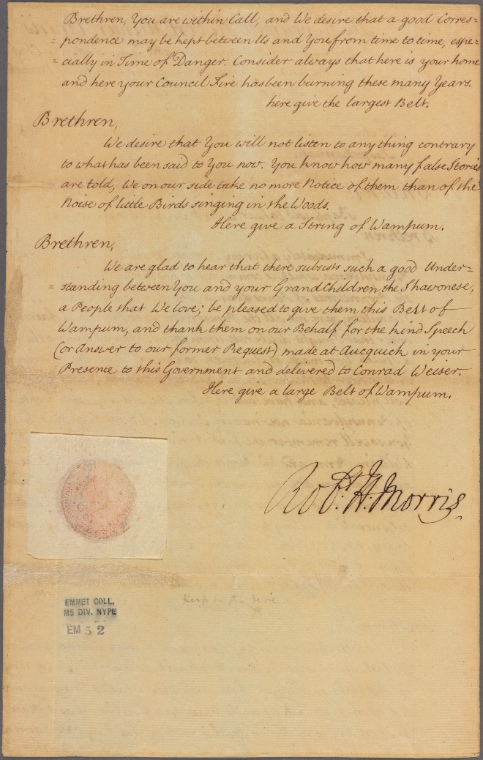 Brethren, You are within Call, and We desire that a good Corres=
=pondence may be kept between Us and You from time to time, espe=
=cially in Time of Danger. Consider always that here is your home
and here your Council Fire has been burning these many Years.
here give the largest Belt.
Brethren,
We desire that You will not listen to any thing contrary
to what has been said to You now. You know how many false Stories
are told, We on our side take no more Notice of them than of the
Noise of little Birds singing in the Woods.
Here give a String of Wampum.
Brethren,
We are glad to hear that there subsists such a good Under=
=standing between You and your Grand Children the Shawonese,
a People that We love; be pleased to give them this Belt of
Wampum, and thank them on our Behalf for the kind Speech
(or Answer to our former Request) made at Aucquick in your
Presence to this Government and delivered to Conrad Weiser.
Here give a large Belt of Wampum.
Robt. H. Morris
EMMET COLL.
MS DIV. NYPL
EM 52